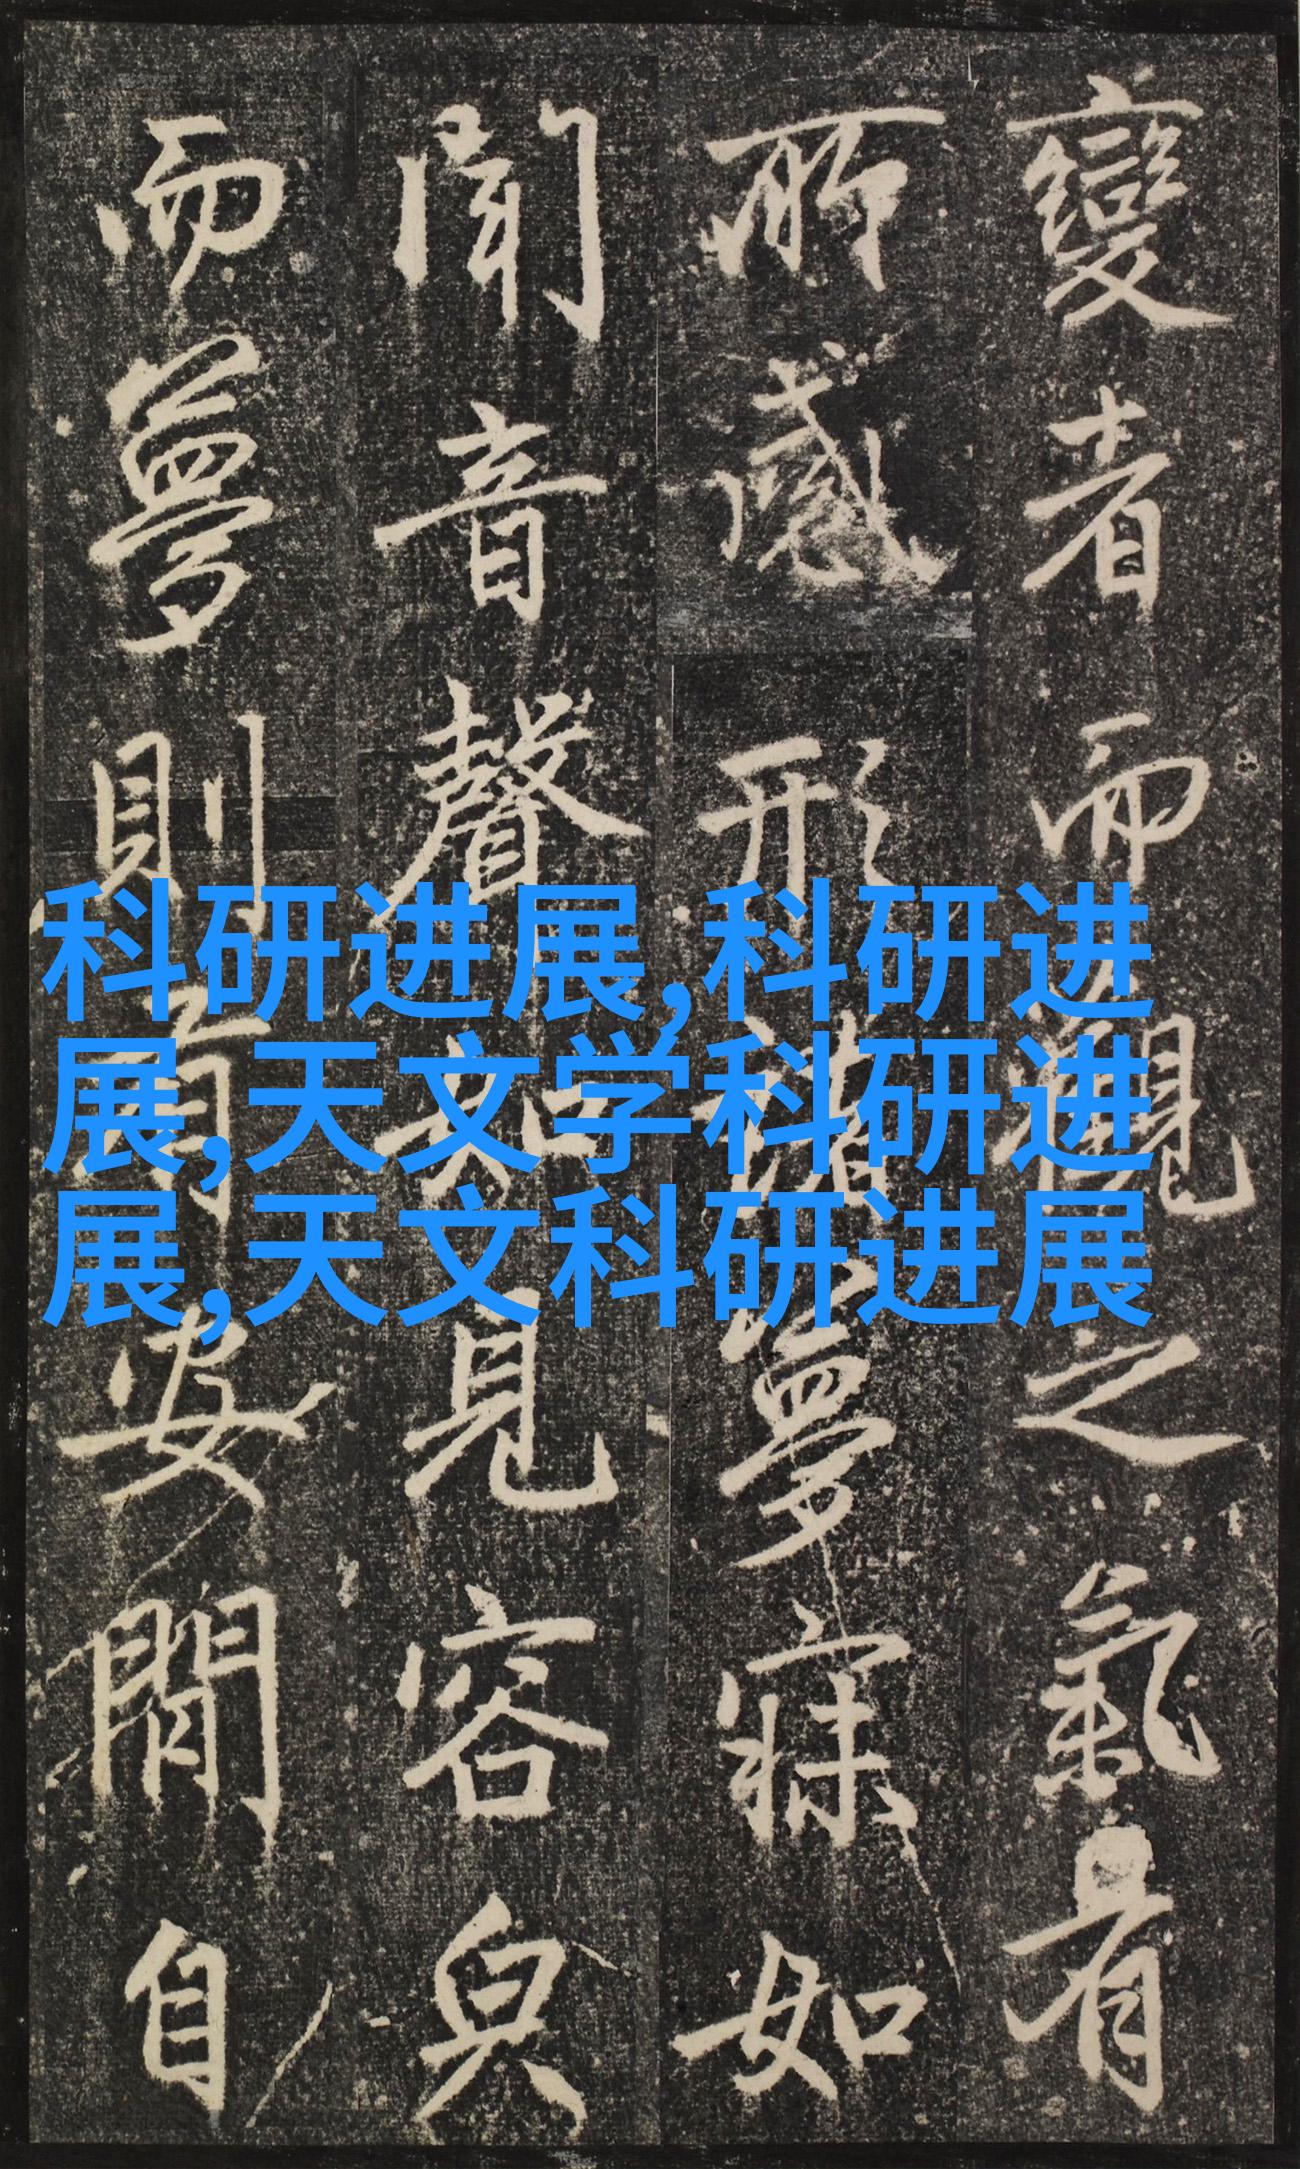 變者而觀之氣有
所感形諸夢寐如
聞音聲如見容皃
而夢則安閒自
科研进展,科研进
展,天文学科研进
展,天文科研进展